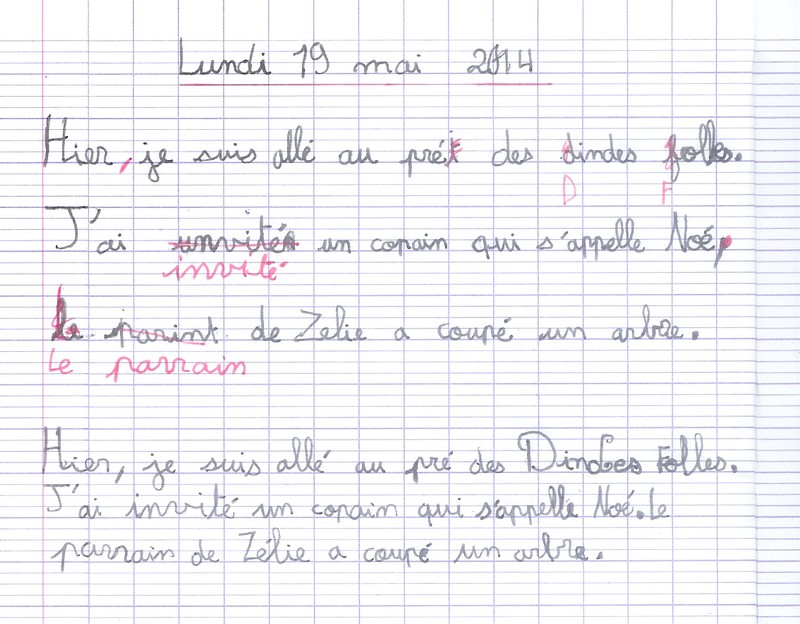 Lundi 19 mai 2014
Hier, je suis allé au pré des dindes folles.
D F
J'ai unvitér un copain qui s'appelle Noé,
invité
le parint de Zelie a coupé un arbre.
Le parrain
Hier, je suis allé au pré des Dindes Folles.
J'ai invité un copain qui s'appelle Noé. Le
parrain de Zélie a coupé un arbre.